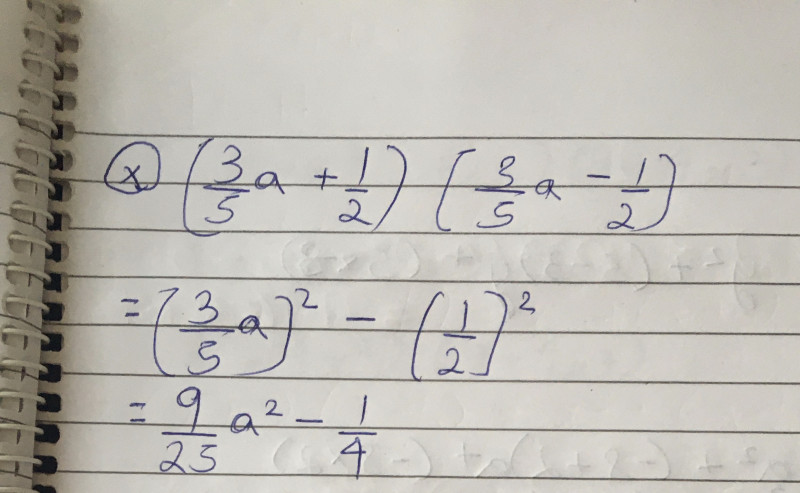 (x) (3/5 a + 1/2) (3/5 a - 1/2)
= (3/5 a)² - (1/2)²
= 9/25 a² - 1/4